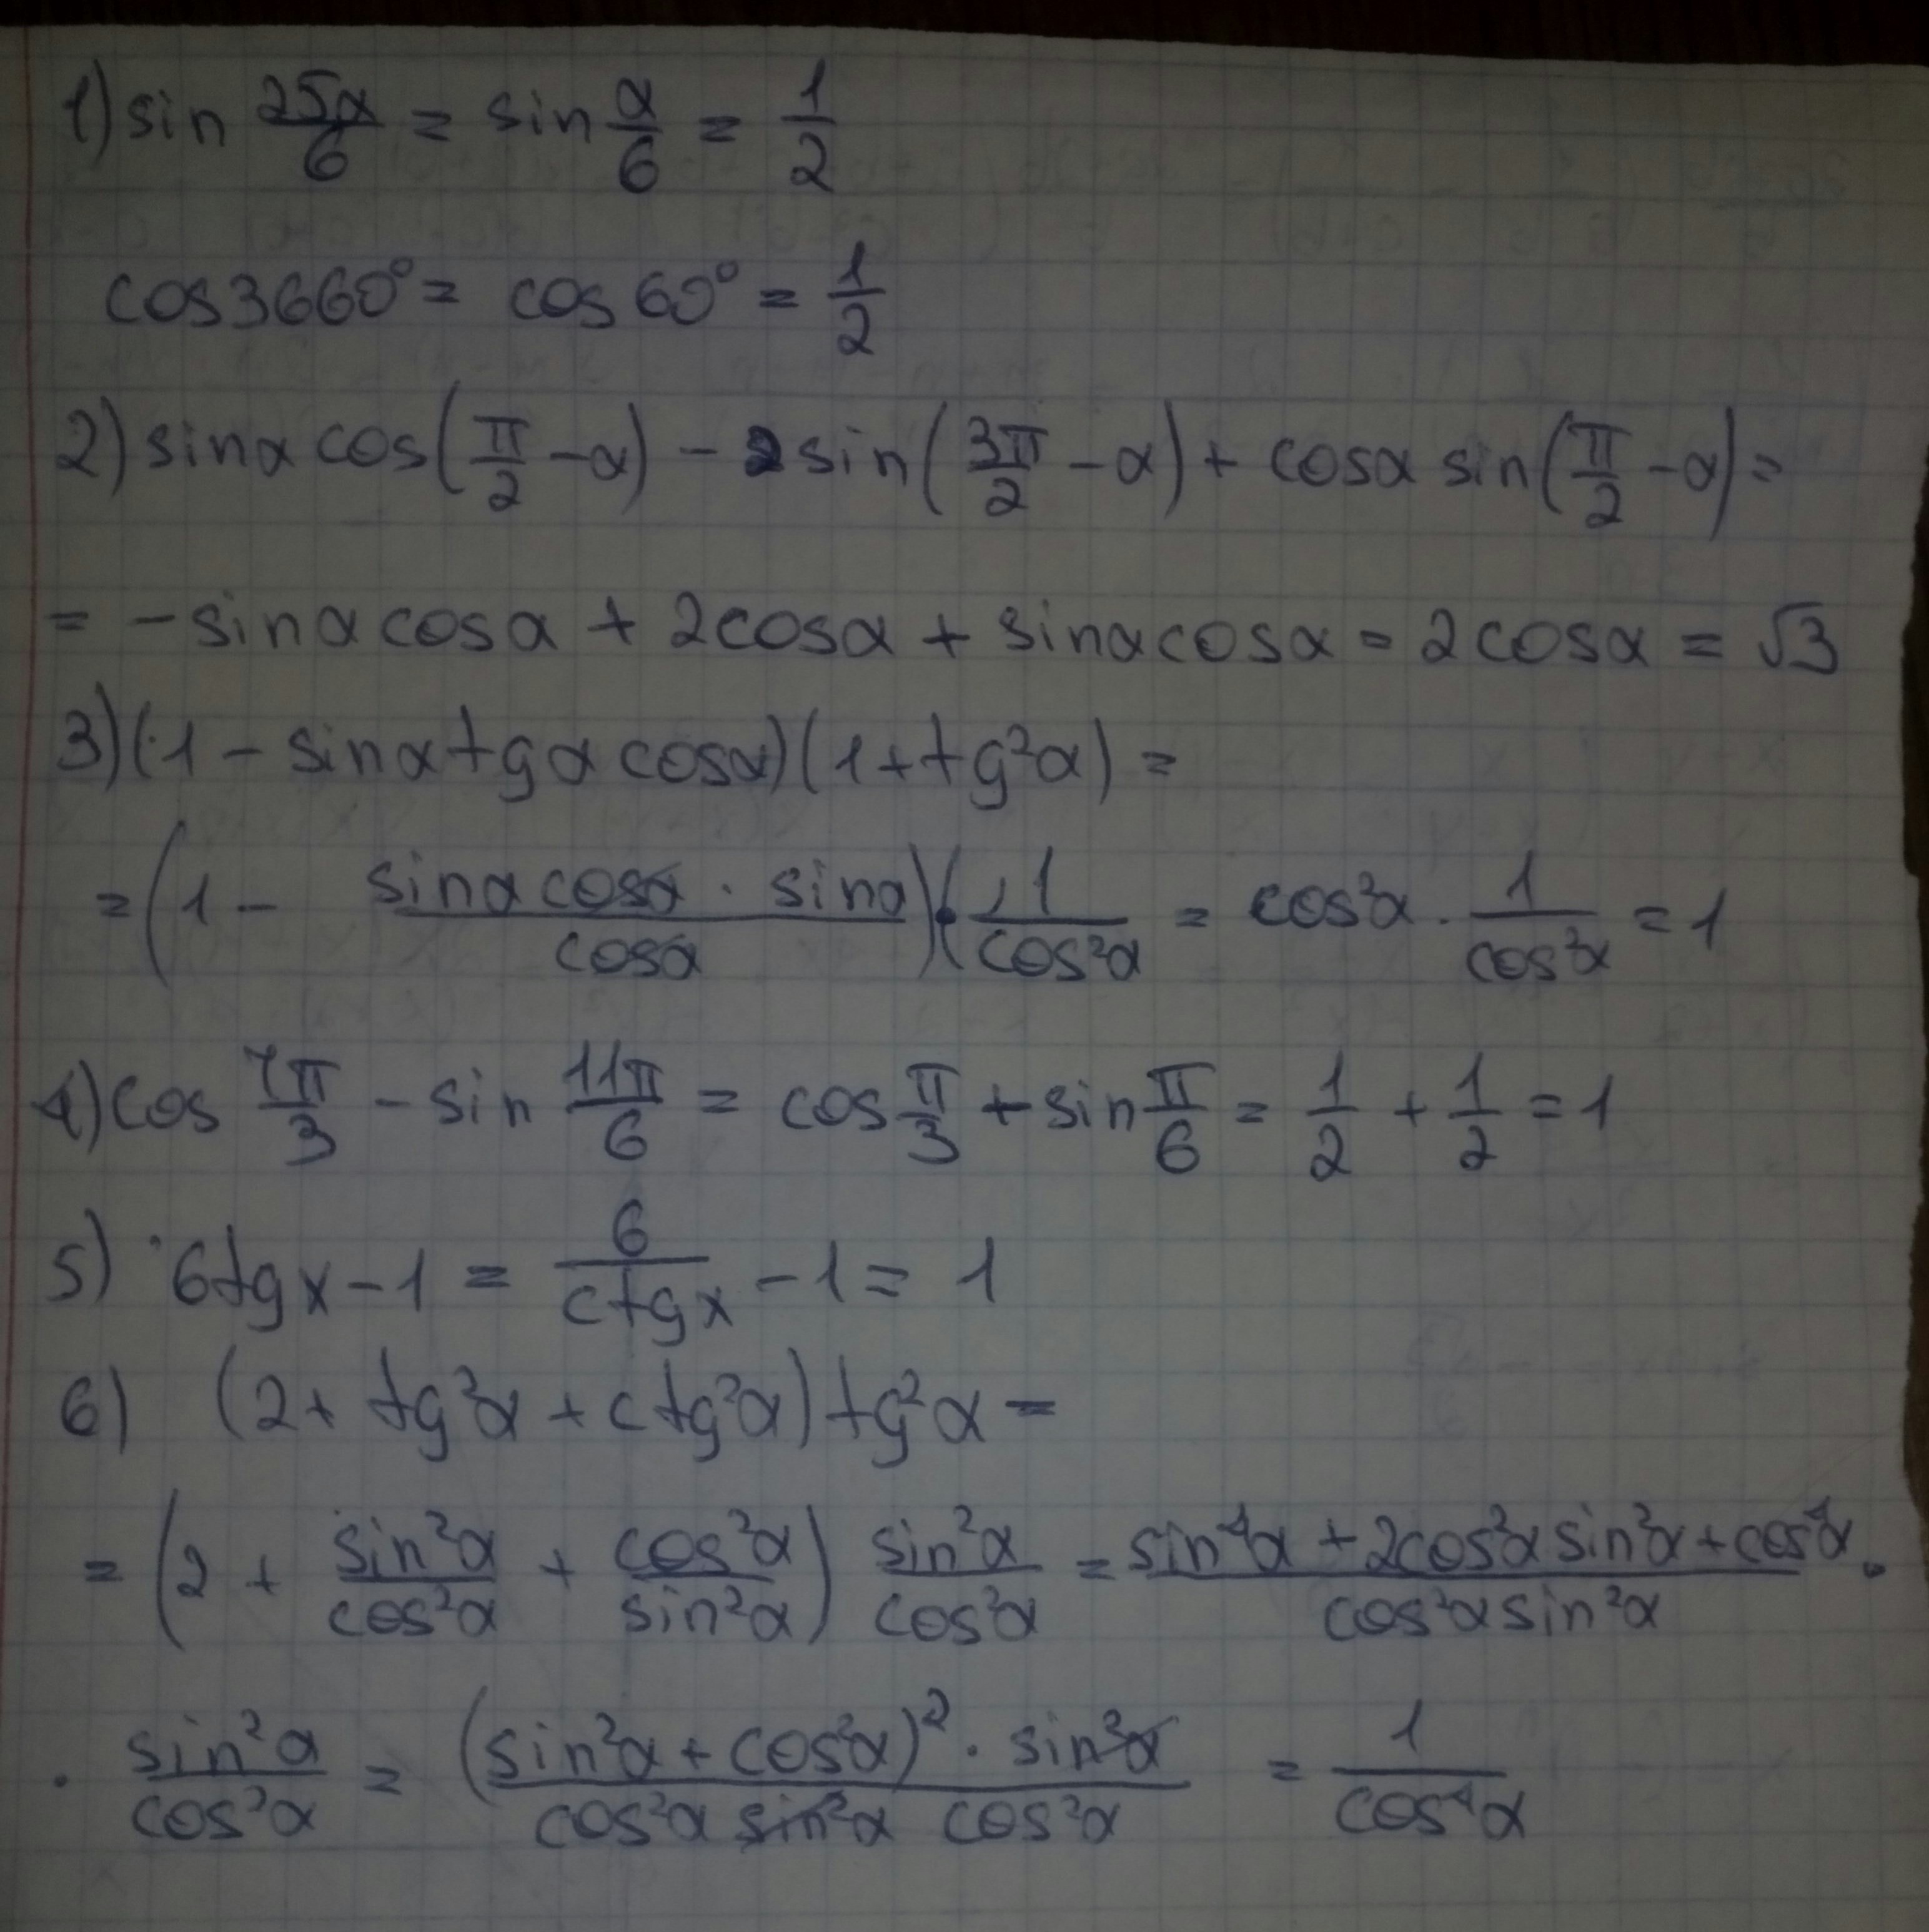 1) sin 25α/6 = sin α/6 = 1/2
cos3660° = cos 60° = 1/2
2) sinα cos(π/2 - α) - 2sin(3π/2 - α) + cosα sin(π/2 - α) =
= - sinα cosα + 2cosα + sinα cosα = 2cosα = √3
3) (1 - sinα tgα cosα)(1 + tg²α) =
= (1 - sinα cosα · sinα/cosα)(1/cos²α = cos²α · 1/cos²α = 1
4) cos 7π/3 - sin 11π/6 = cos π/3 + sin π/6 = 1/2 + 1/2 = 1
5) 6tgx - 1 = 6/ctgx - 1 = 1
6) (2 + tg²α + ctg²α) tg²α =
= (2 + sin²α/cos²α + cos²α/sin²α) sin²α/cos²α = sin⁴α + 2cos²α sin²α + cos⁴α/cos²α sin²α ·
· sin²α/cos²α = (sin²α + cos²α)² · sin²α/cos²α sin²α cos²α = 1/cos⁴α